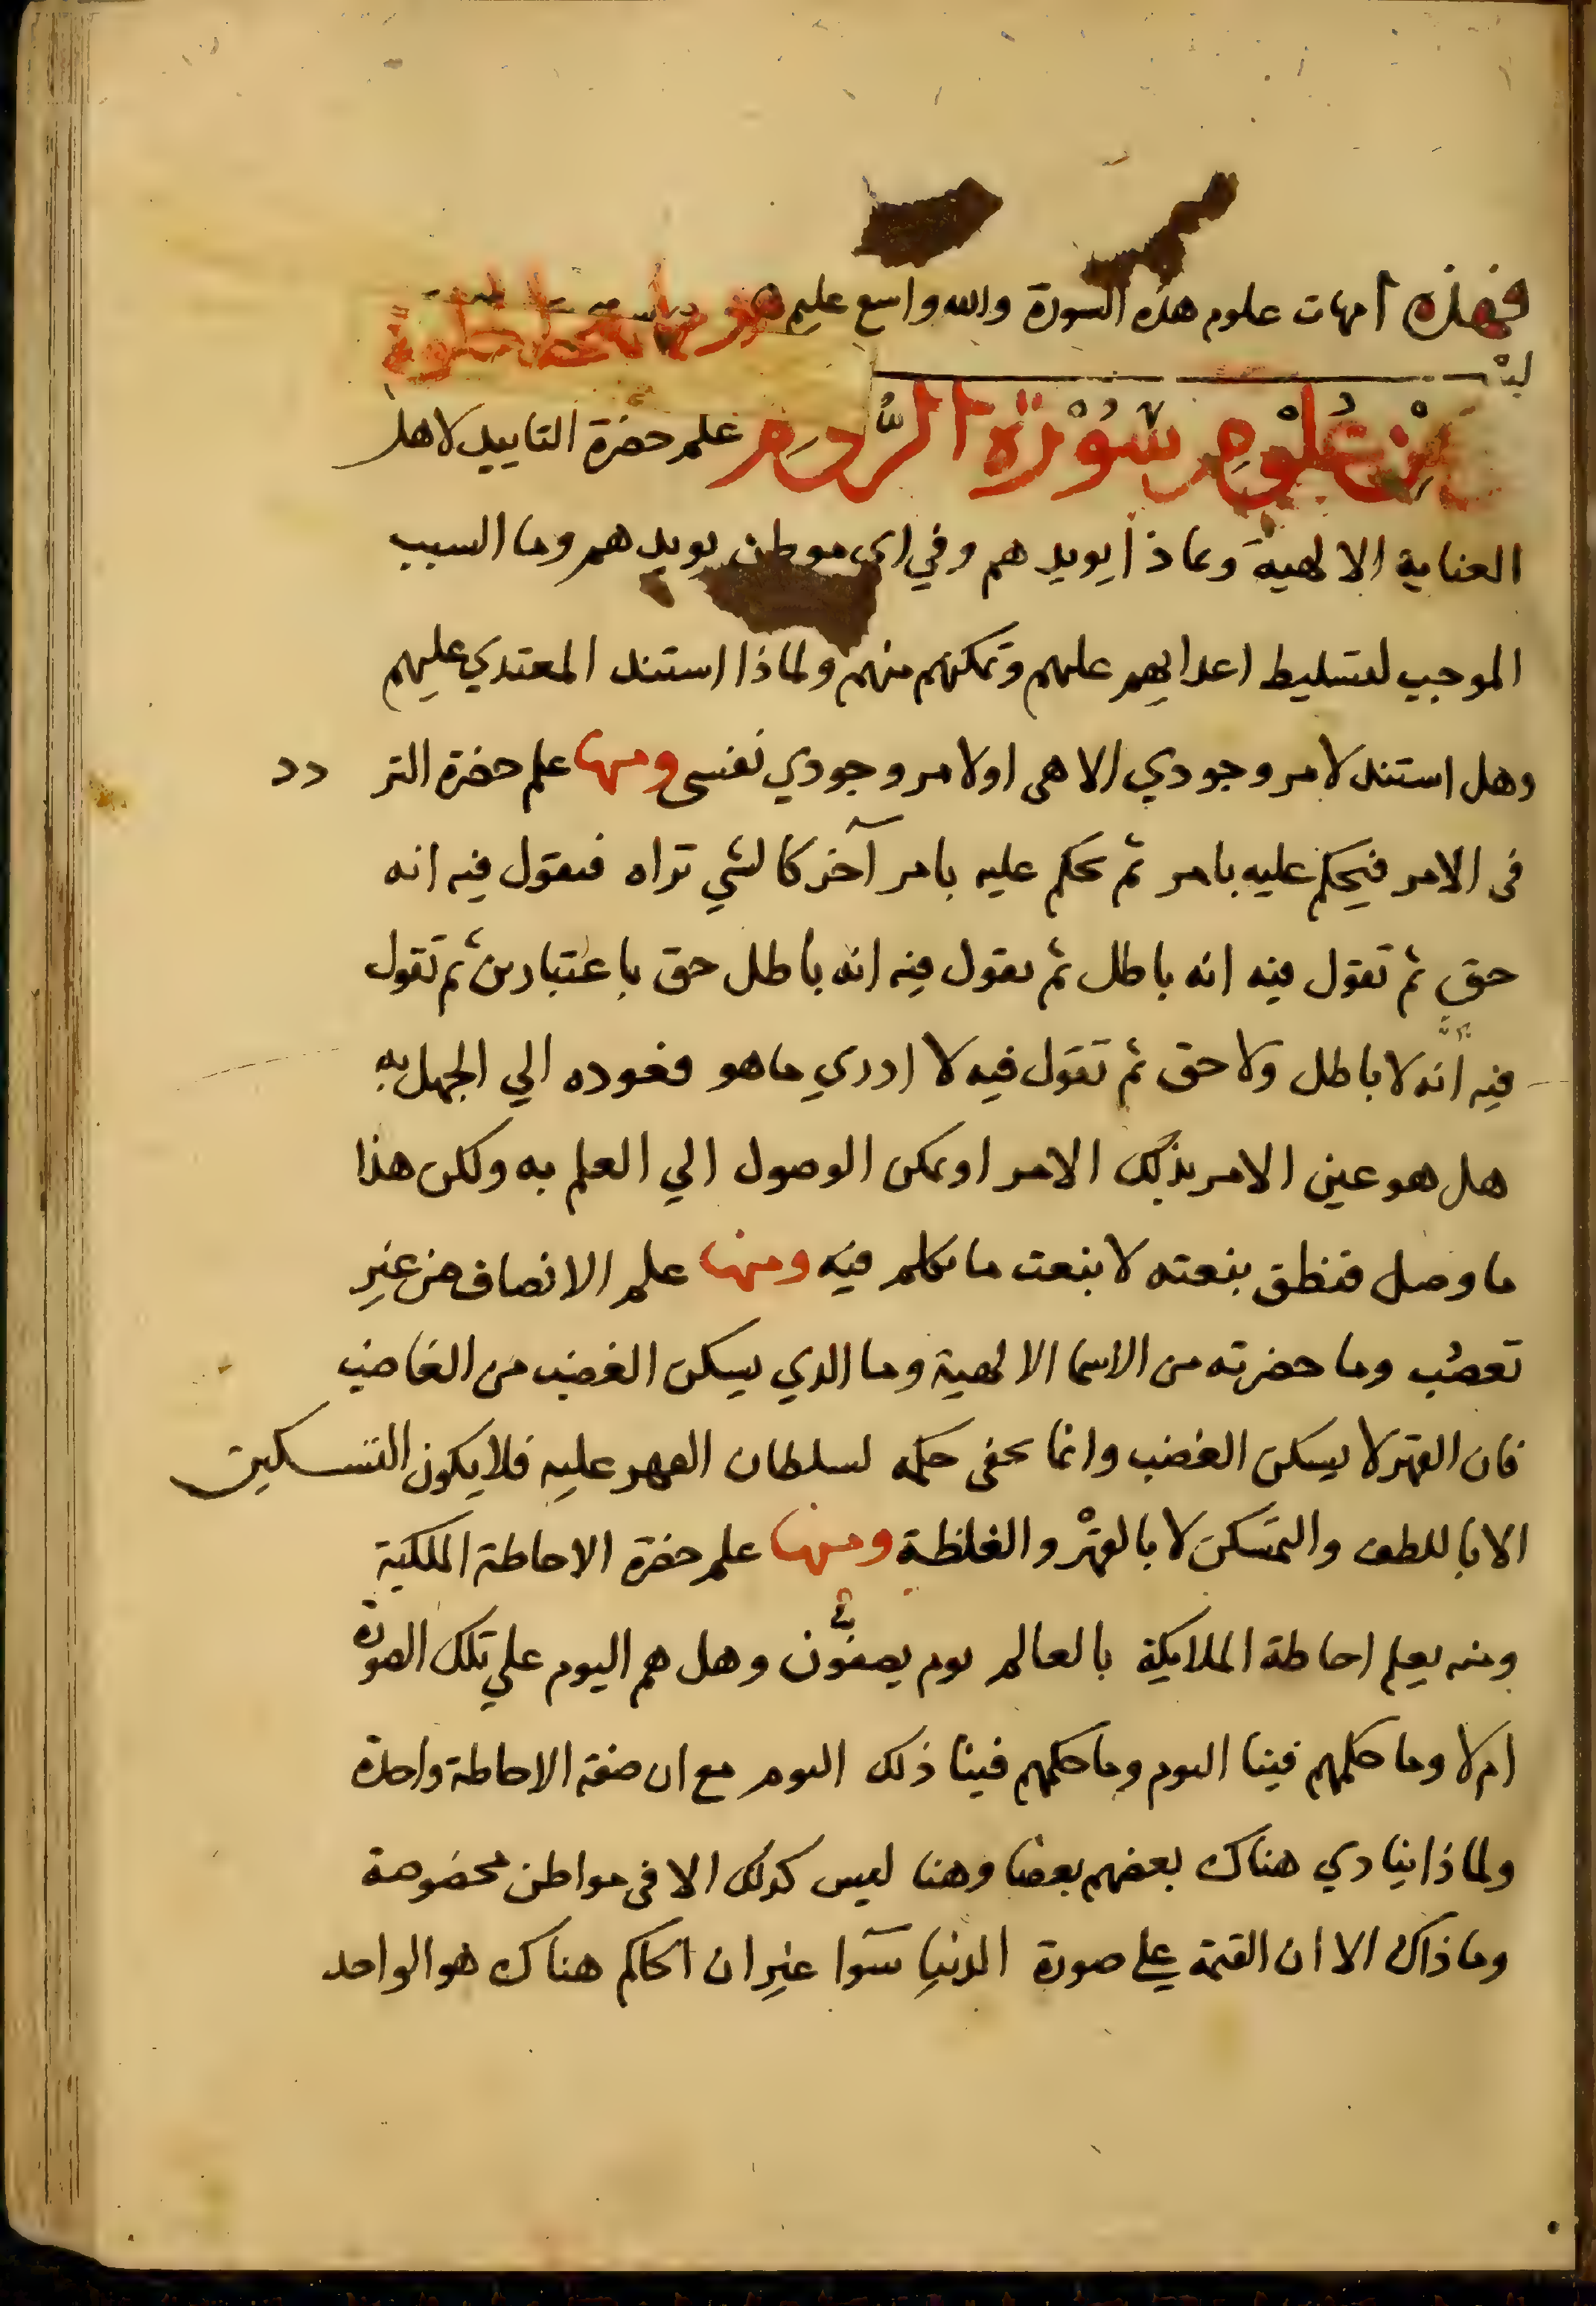 فهذه امهات علوم هذه السورة والله واسع عليم
من علوم سُوْرَة الرُّوم علم حضرة التاييد لاهل
العناية الالهية وبماذا يويدهم وفي اي موطن يويدهم وما السبب
الموجب لتسليط اعدايهم عليهم وتمكنهم منهم ولماذا استند المعتدي عليهم
وهل استند لامر وجودي الاهى او لامر وجودي نفسى ومنها علم حضرة التر دد
فى الامر فيحكم عليه بامر ثم يحكم عليه بامر آخر كالشي تراه فتقول فيه انه
حق ثم تقول فيه انه باطل ثم يقول فيه انه باطل حق باعتبارين ثم تقول
فيه انّه لا باطل ولا حق ثم تقول فيه لا ادري ما هو فعوده الي الجهل به
هل هو عين الامر بذلك الامر او يمكن الوصول الي العلم به ولكن هذا
ما وصل فنطق بنعته لا بنعت ما تكلم فيه ومنها علم الانصاف من غير
تعصّب وما حضرته من الاسما الالهية وما الذي يسكن الغضب من الغاضب
فان القهر لا يسكن الغضب وانما يخفى حكمه لسلطان القهر عليه فلا يكون التسكين
الا باللطف والتمسكن لا بالقهْر والغلظة ومنها علم حضرة الاحاطة الملكية
ومنه يعلم احاطة الملايكة بالعالم يوم يصفّون وهل هم اليوم علي تلك الصورة
ام لا وما حكمهم فينا اليوم وما حكمهم فينا ذلك اليوم مع ان صفة الاحاطة واحدة
ولماذا ينادي هناك بعضهم بعضا وهنا ليس كذلك الا فى مواطن مخصوصة
وما ذاك الا ان القيمة على صورة الدنيا سوآ غير ان الحاكم هناك هو الواحد